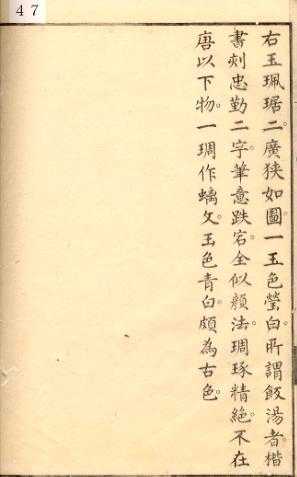 47
右玉珮琚二。廣狹如圖。一玉色瑩白。所謂飯湯者。楷
書刻忠勤二字。筆意跌宕。全似顏法。琱琢精絕。不在
唐以下物。一琱作螭文。玉色青白。頗為古色。